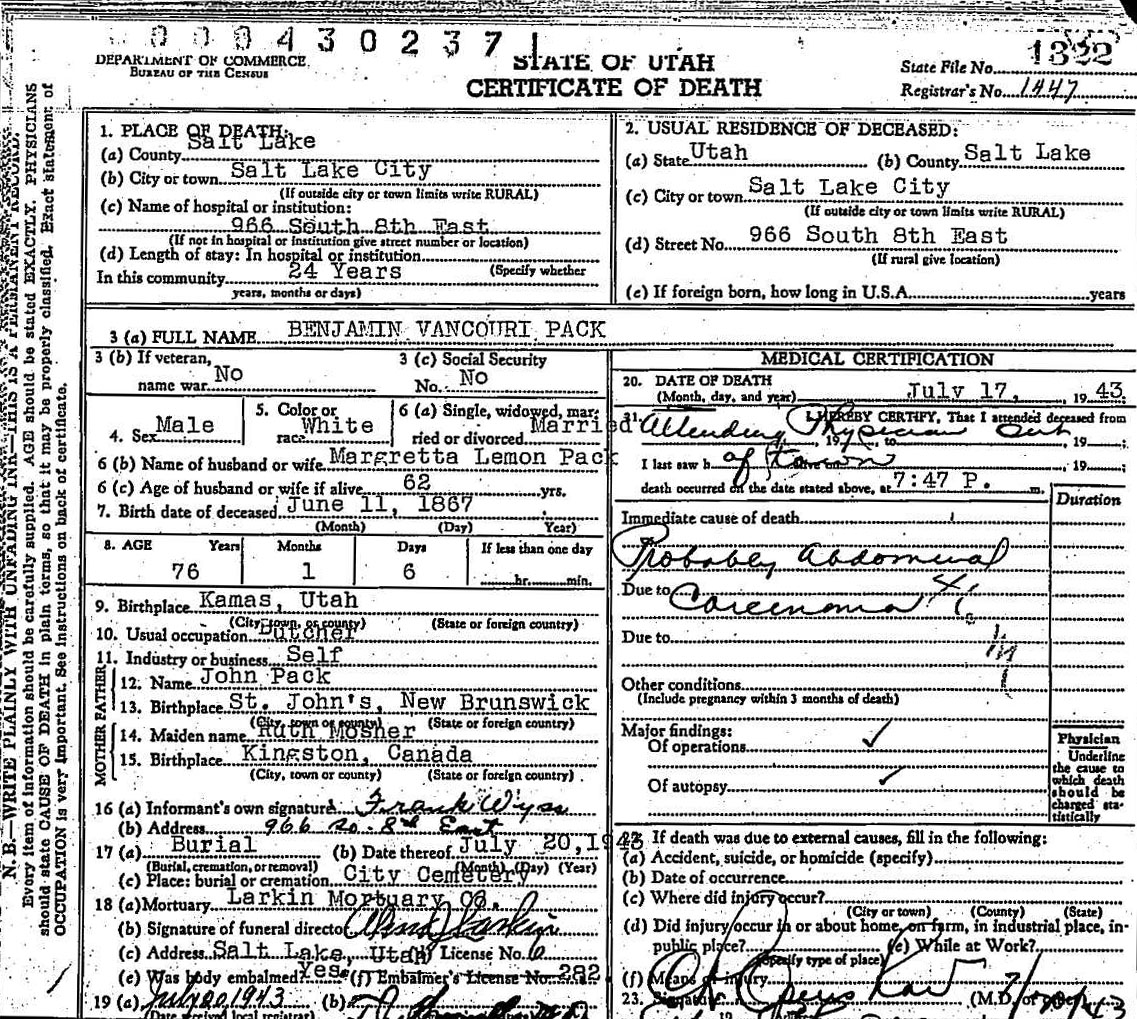 000430237
DEPARTMENT OF COMMERCE
BUREAU OF THE CENSUS
STATE OF UTAH
CERTIFICATE OF DEATH
State File No. 1322
Registrar's No. 1447
N. B.—WRITE PLAINLY WITH UNFADING INK—THIS IS A PERMANENT RECORD.
Every item of information should be carefully supplied. AGE should be stated EXACTLY. PHYSICIANS
should state CAUSE OF DEATH in plain terms, so that it may be properly classified. Exact statement of
OCCUPATION is very important. See instructions on back of certificate.
1. PLACE OF DEATH:
(a) County Salt Lake
(b) City or town Salt Lake City
(If outside city or town limits write RURAL)
(c) Name of hospital or institution:
966 South 8th East
(If not in hospital or institution give street number or location)
(d) Length of stay: In hospital or institution
In this community 24 Years (Specify whether
years, months or days)
2. USUAL RESIDENCE OF DECEASED:
(a) State Utah (b) County Salt Lake
(c) City or town Salt Lake City
(If outside city or town limits write RURAL)
(d) Street No. 966 South 8th East
(If rural give location)
(e) If foreign born, how long in U.S.A. years
3 (a) FULL NAME BENJAMIN VANCOURI PACK
3 (b) If veteran, name war No
3 (c) Social Security No. No
4. Sex Male
5. Color or race White
6 (a) Single, widowed, married or divorced Married
6 (b) Name of husband or wife Margretta Lemon Pack
6 (c) Age of husband or wife if alive 62 yrs.
7. Birth date of deceased June 11, 1867
(Month) (Day) Year)
8. AGE Years Months Days If less than one day
76 1 6 hr. min.
9. Birthplace Kamas, Utah
(City, town, or county) (State or foreign country)
10. Usual occupation Butcher
11. Industry or business Self
FATHER
12. Name John Pack
13. Birthplace St. John's, New Brunswick
(City, town or county) (State or foreign country)
MOTHER
14. Maiden name Ruth Mosher
15. Birthplace Kingston, Canada
(City, town or county) (State or foreign country)
16 (a) Informant's own signature Frank Wyss
(b) Address 966 So. 8th East
17 (a) Burial (b) Date thereof July 20, 1943
(Burial, cremation, or removal) (Month) (Day) (Year)
(c) Place: burial or cremation City Cemetery
18 (a) Mortuary Larkin Mortuary Co.
(b) Signature of funeral director
(c) Address Salt Lake, Utah (d) License No. 6
(e) Was body embalmed? Yes (f) Embalmer's License No. 282
19 (a) July 20, 1943 (b)
Date received local registrar)
MEDICAL CERTIFICATION
20. DATE OF DEATH
(Month, day, and year) July 17, 1943
21. I HEREBY CERTIFY, That I attended deceased from
Attending Physician out , 19 , to , 19
I last saw h of town , 19
death occurred on the date stated above, at 7:47 P. m.
Duration
Immediate cause of death
Probably Abdominal
Due to Carcinoma
Due to
Other conditions
(Include pregnancy within 3 months of death)
Major findings:
Of operations ✓
Of autopsy ✓
Physician
Underline
the cause to
which death
should be
charged sta-
tistically
If death was due to external causes, fill in the following:
(a) Accident, suicide, or homicide (specify)
(b) Date of occurrence
(c) Where did injury occur?
(City or town) (County) (State)
(d) Did injury occur in or about home, on farm, in industrial place, in-
public place? (e) While at Work?
(Specify type of place)
(f) Means of injury
23. Signature (M.D. or 7/20/43